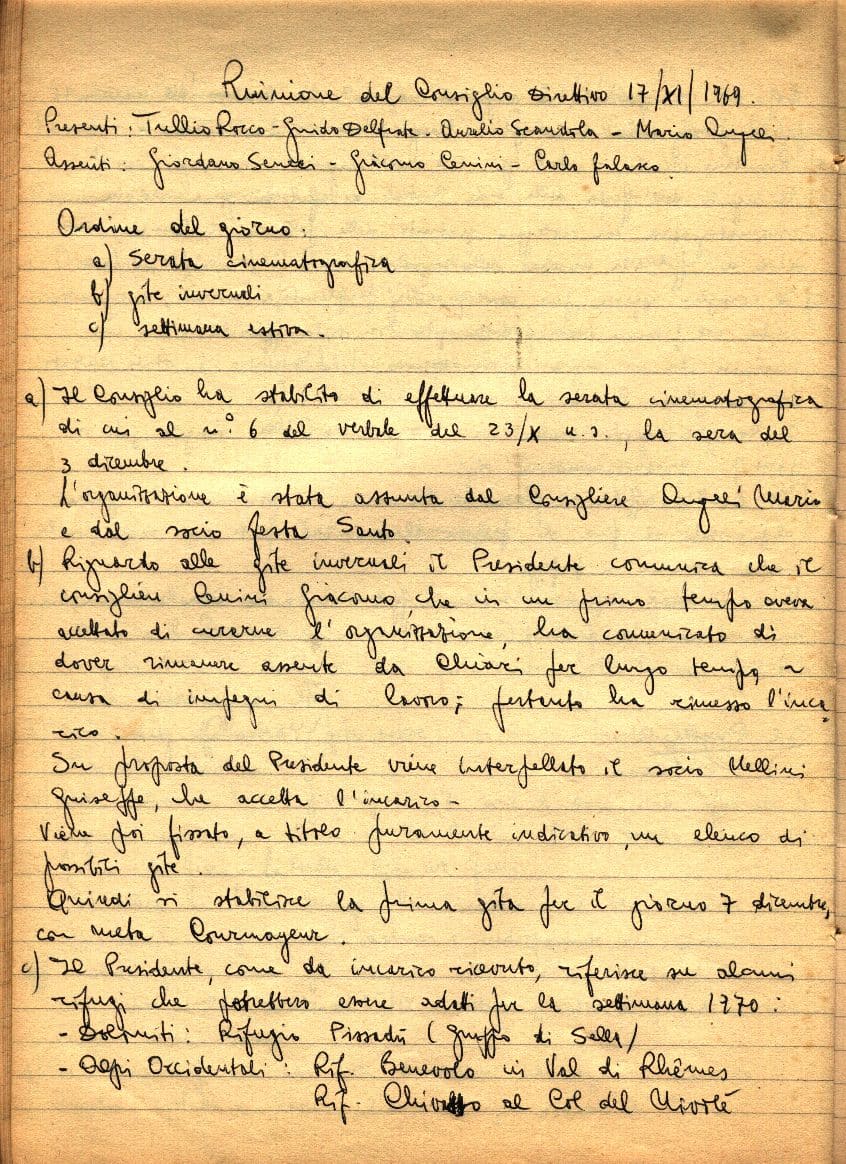 Riunione del Consiglio Direttivo 17/XI/1969.
Presenti: Tullio Rocco - Guido Delfrate - Aurelio Scandola - Mario Angeli.
Assenti: Giordano - Giacomo Cenini - Carlo Falasco.
Ordine del giorno:
a) Serata cinematografica
b) gite invernali
c) settimana estiva.
a) Il Consiglio ha stabilito di effettuare la serata cinematografica
di cui al n° 6 del verbale del 23/X u.s., la sera del
3 dicembre.
L'organizzazione è stata assunta dal Consigliere Angeli Mario
e dal socio Festa Santo.
b) Riguardo alle gite invernali il Presidente comunica che il
consigliere Cenini Giacomo, che in un primo tempo aveva
accettato di curarne l'organizzazione, ha comunicato di
dover rimanere assente da Chiari per lungo tempo a
causa di impegni di lavoro; pertanto ha rimesso l'inca-
rico.
Su proposta del Presidente viene interpellato il socio Mellini
Giuseppe, che accetta l'incarico -
Viene poi fissato, a titolo puramente indicativo, un elenco di
possibili gite.
Quindi si stabilisce la prima gita per il giorno 7 dicembre,
con meta Courmayeur.
c) Il Presidente, come da incarico ricevuto, riferisce su alcuni
rifugi che potrebbero essere adatti per la settimana 1970:
- Dolomiti: Rifugio Pissadù (Gruppo di Sella)
- Alpi Occidentali: Rif. Benevolo in Val di Rhêmes
Rif. Chivasso al Col del Nivolé